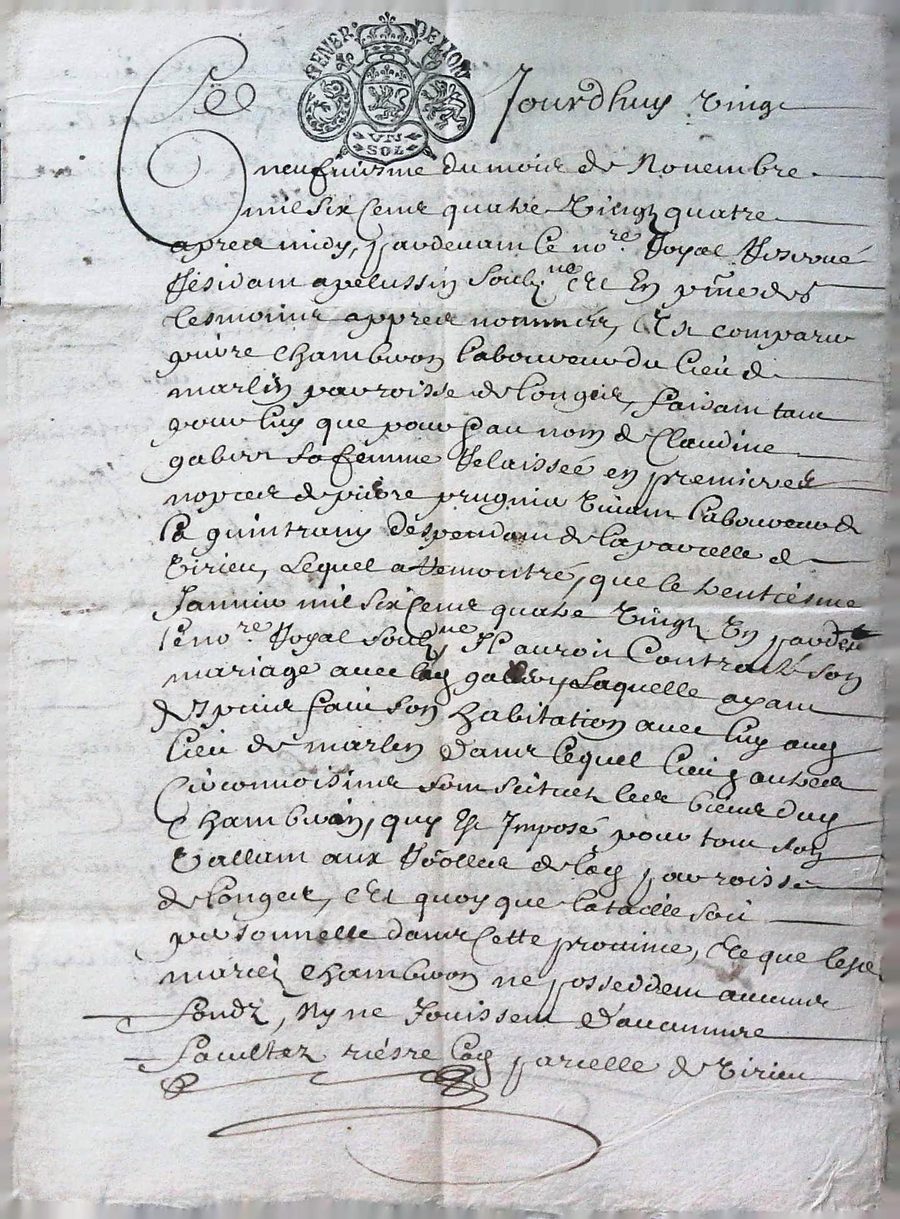 GENER. DE LION
UN
SOL
Ce Jourdhuy vingt
neufuiesme du mois de Novembre
mil six Cens quatre vingtz quatre
apres midy, pardevant le no.re Royal Reservé
Résidant a pelussin soubz.né Et En p.nce des
tesmoins appres nommés, Est comparu
pierre Chambvon laboureur du lieu de
marlin parroisse de Longes, faisant tant
pour luy que pour & au nom de Claudine
gabert sa femme Relaissée en premieres
nopces de pierre prugniu vivant laboureur de
la quintrany despendant de la parcelle de
virieu, Lequel a Remontré, que le trentiesme
Janvier mil six Cens quatre vingtz Un pardevt
le no.re Royal soubz.né Il auroit Contracté son
mariage avec lad gabert Laquelle ayant
despuis faict son habitation avec luy aud
lieu de marlin dans lequel lieu & autres
Circonvoisins sont scitues les biens dud
Chambvon, quy Est Imposé pour tout son
vallant aux Roolles de lad parroisse
de Longes, Et quoy que la taille soit
personnelle dans Cette province, Et que lesd
mariez Chambvon ne posseddent aucuns
fondz, Ny ne Jouissent d'aucunne
facultez riesre lad parcelle de virieu